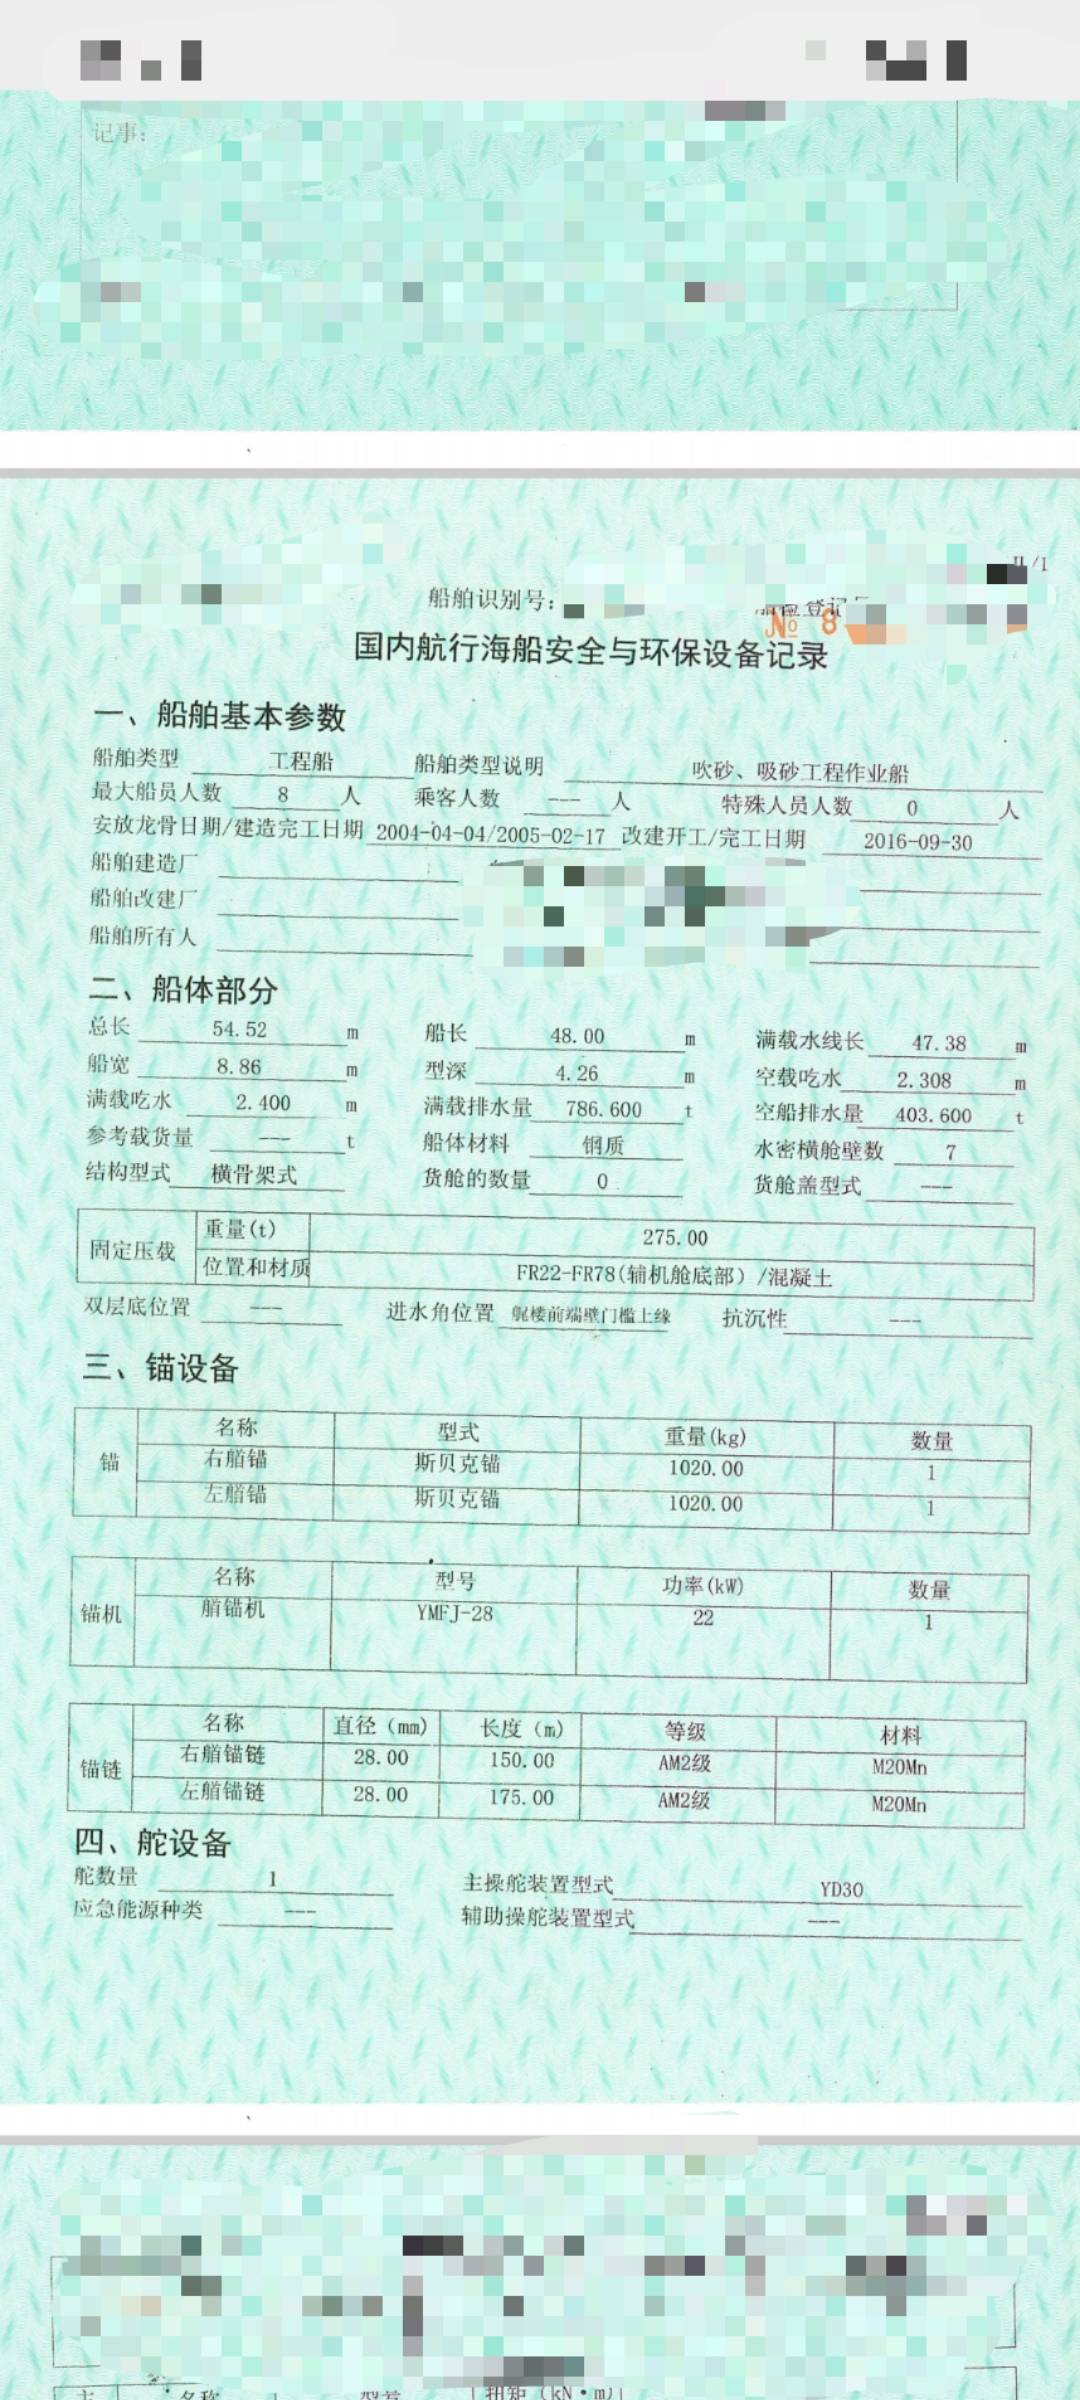 记事:
船舶识别号:
№ 8
国内航行海船安全与环保设备记录
一、船舶基本参数
船舶类型 工程船 船舶类型说明 吹砂、吸砂工程作业船
最大船员人数 8 人 乘客人数 --- 人 特殊人员人数 0 人
安放龙骨日期/建造完工日期 2004-04-04/2005-02-17 改建开工/完工日期 2016-09-30
船舶建造厂
船舶改建厂
船舶所有人
二、船体部分
总长 54.52 m 船长 48.00 m 满载水线长 47.38 m
船宽 8.86 m 型深 4.26 m 空载吃水 2.308 m
满载吃水 2.400 m 满载排水量 786.600 t 空船排水量 403.600 t
参考载货量 --- t 船体材料 钢质 水密横舱壁数 7
结构型式 横骨架式 货舱的数量 0 货舱盖型式 ---
固定压载 重量(t) 275.00
位置和材质 FR22-FR78(辅机舱底部）/混凝土
双层底位置 --- 进水角位置 艉楼前端壁门槛上缘 抗沉性 ---
三、锚设备
名称 型式 重量(kg) 数量
锚 右艏锚 斯贝克锚 1020.00 1
左艏锚 斯贝克锚 1020.00 1
名称 型号 功率(kW) 数量
锚机 艏锚机 YMFJ-28 22 1
名称 直径（mm) 长度（m) 等级 材料
锚链 右艏锚链 28.00 150.00 AM2级 M20Mn
左艏锚链 28.00 175.00 AM2级 M20Mn
四、舵设备
舵数量 1 主操舵装置型式 YD30
应急能源种类 --- 辅助操舵装置型式 ---
名称 型号 扭矩（kN·m）